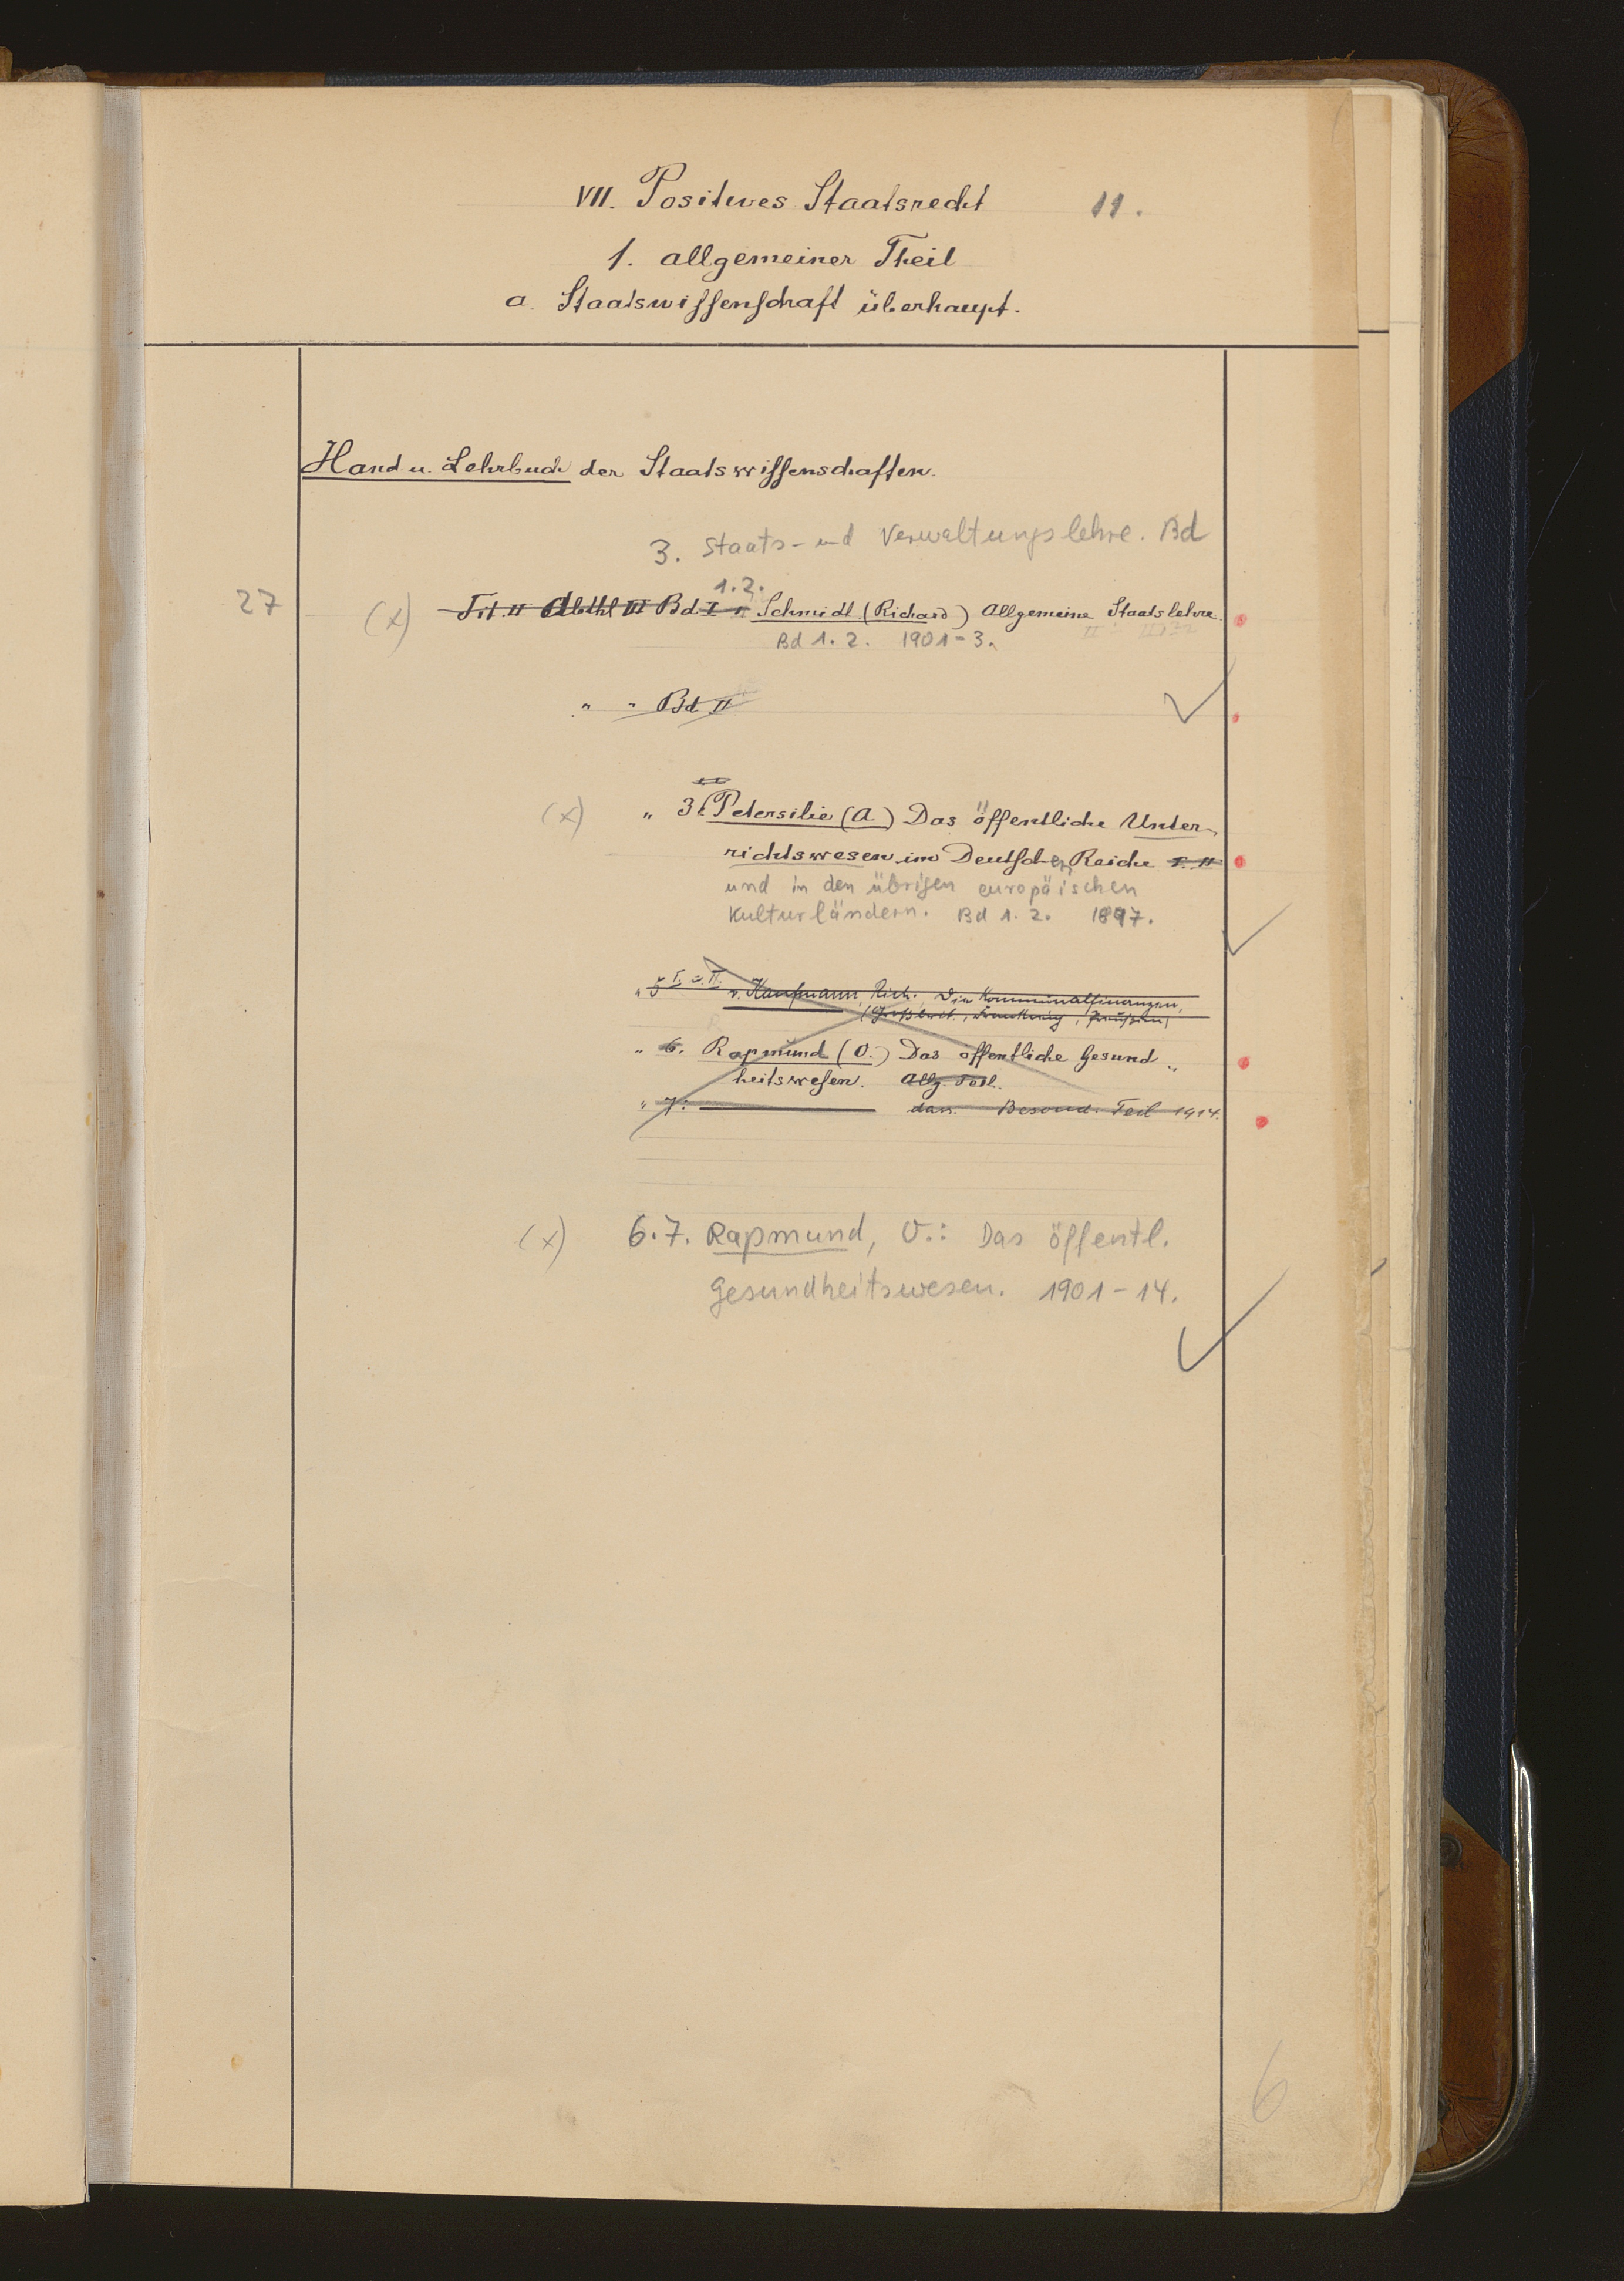 VII. Positives Staatsrecht 11.
1. allgemeiner Theil
a. Staatswissenschaft überhaupt.
Hand u. Lehrbuch der Staatswissenschaften.
3. Staats- und Verwaltungslehre. Bd
1.2.
27 (x) Tit. II Abthl III Bd I Schmidt (Richard) Allgemeine Staatslehre.
Bd 1. 2. 1901-3.
" " Bd II
(x) " 3. Petersilie (A.) Das öffentliche Unter-
richtswesen im Deutschen Reiche I. II
und in den übrigen europäischen
Kulturländern. Bd 1. 2. 1897.
" 5 I. u. II. v. Kaufmann, Rich., Die Kommunalfinanzen,
(Großbrit., Frankreich, Preußen)
" 6. Rapmund (O.) Das öffentliche Gesund "
heitswesen. Allg. Teil.
" 7. dass. Besond. Teil 1914.
(x) 6.7. Rapmund, O.: Das öffentl.
Gesundheitswesen. 1901-14.
6